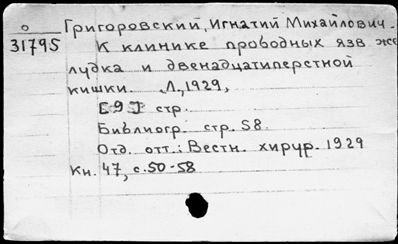 о Григоровский, Игнатий Михайлович.
31795 К клинике проводных язв же
лудка и двенадцатиперстной
кишки. Л., 1929,
[9] стр.
Библиогр. стр. 58.
Отд. отт.: Вестн. хирур. 1929
кн. 47, с. 50-58